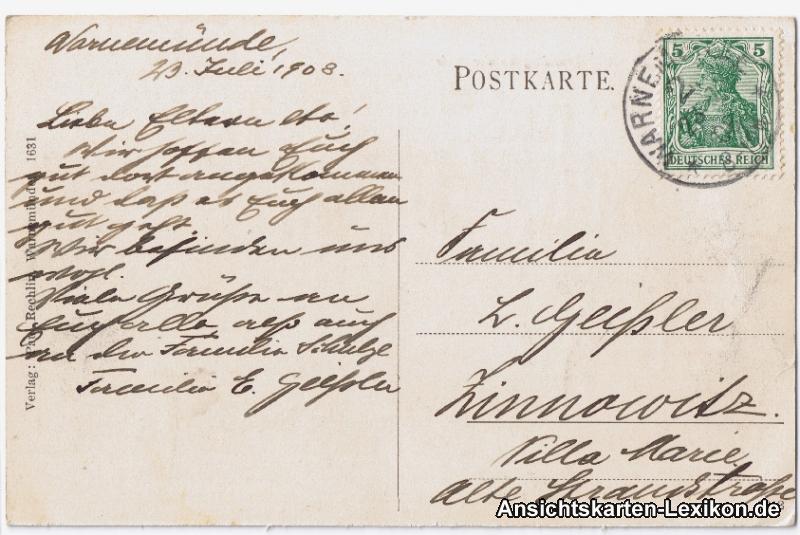 Warnemünde,
23. Juli 1908.
Liebe Eltern etc!
Wir hoffen Euch
gut dort angekommen
und daß es Euch allen
gut geht.
Wir befinden uns
wohl.
Viele Grüße an
Euch alle, als auch
an die Familie Schulze
Familie E. Geißler
Verlag: Paul Rechlin, Warnemünde 1631
POSTKARTE.
5 5
DEUTSCHES REICH
WARNEMÜNDE
Familie
L. Geißler
Zinnowitz.
Villa Marie
Alte Strandstraße
Ansichtskarten-Lexikon.de